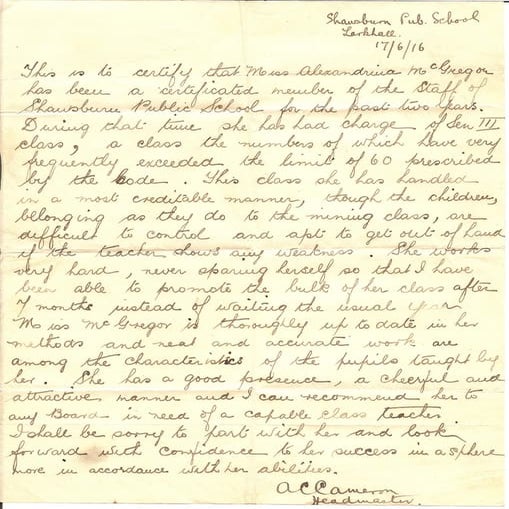 Shawsburn Pub. School
Larkhall.
17/6/16
This is to certify that Miss Alexandrina McGregor
has been a certificated member of the Staff of
Shawsburn Public School for the past two years.
During that time she has had charge of Sen III
class, a class the numbers of which have very
frequently exceeded the limit of 60 prescribed
by the Code. This class she has handled
in a most creditable manner, though the children,
belonging as they do to the mining class, are
difficult to control and apt to get out of hand
if the teacher shows any weakness. She works
very hard, never sparing herself so that I have
been able to promote the bulk of her class after
7 months instead of waiting the usual year
Miss McGregor is thoroughly up to date in her
methods and neat and accurate work are
among the characteristics of the pupils taught by
her. She has a good presence, a cheerful and
attractive manner and I can recommend her to
any Board in need of a capable class teacher.
I shall be sorry to part with her and look
forward with confidence to her success in a sphere
more in accordance with her abilities.
A C Cameron
Headmaster.